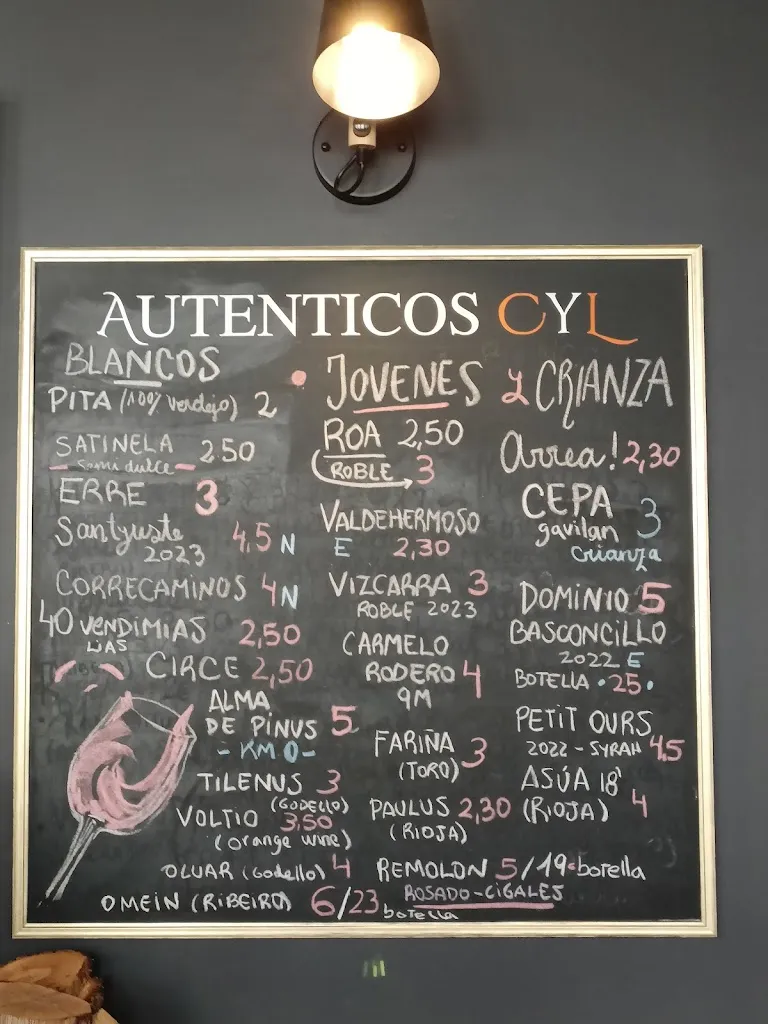 AUTENTICOS CYL
BLANCOS
PITA (100% verdejo) 2
SATINELA 250
Semi dulce
ERRE 3
Santyuste 4,5 N
2023
CORRECAMINOS 4 N
40 VENDIMIAS 2,50
LIAS
CIRCE 2,50
ALMA
DE PINUS 5
- KM 0 -
TILENUS 3
(GODELLO)
VOLTIO 3,50
(orange wine)
OLUAR (Godello) 4
OMEIN (RIBEIRO) 6/23 botella
JOVENES y CRIANZA
ROA 2,50
ROBLE 3
VALDEHERMOSO
E 2,30
VIZCARRA 3
ROBLE 2023
CARMELO
RODERO 4
9M
FARIÑA 3
(TORO)
PAULUS 2,30
(RIOJA)
Arrea! 2,30
CEPA 3
gavilan
Crianza
DOMINIO 5
BASCONCILLO
2022 E
BOTELLA ·25·
PETIT OURS
2022 - SYRAH 4,5
ASÚA 18'
(RIOJA) 4
REMOLON 5/19 botella
ROSADO-CIGALES